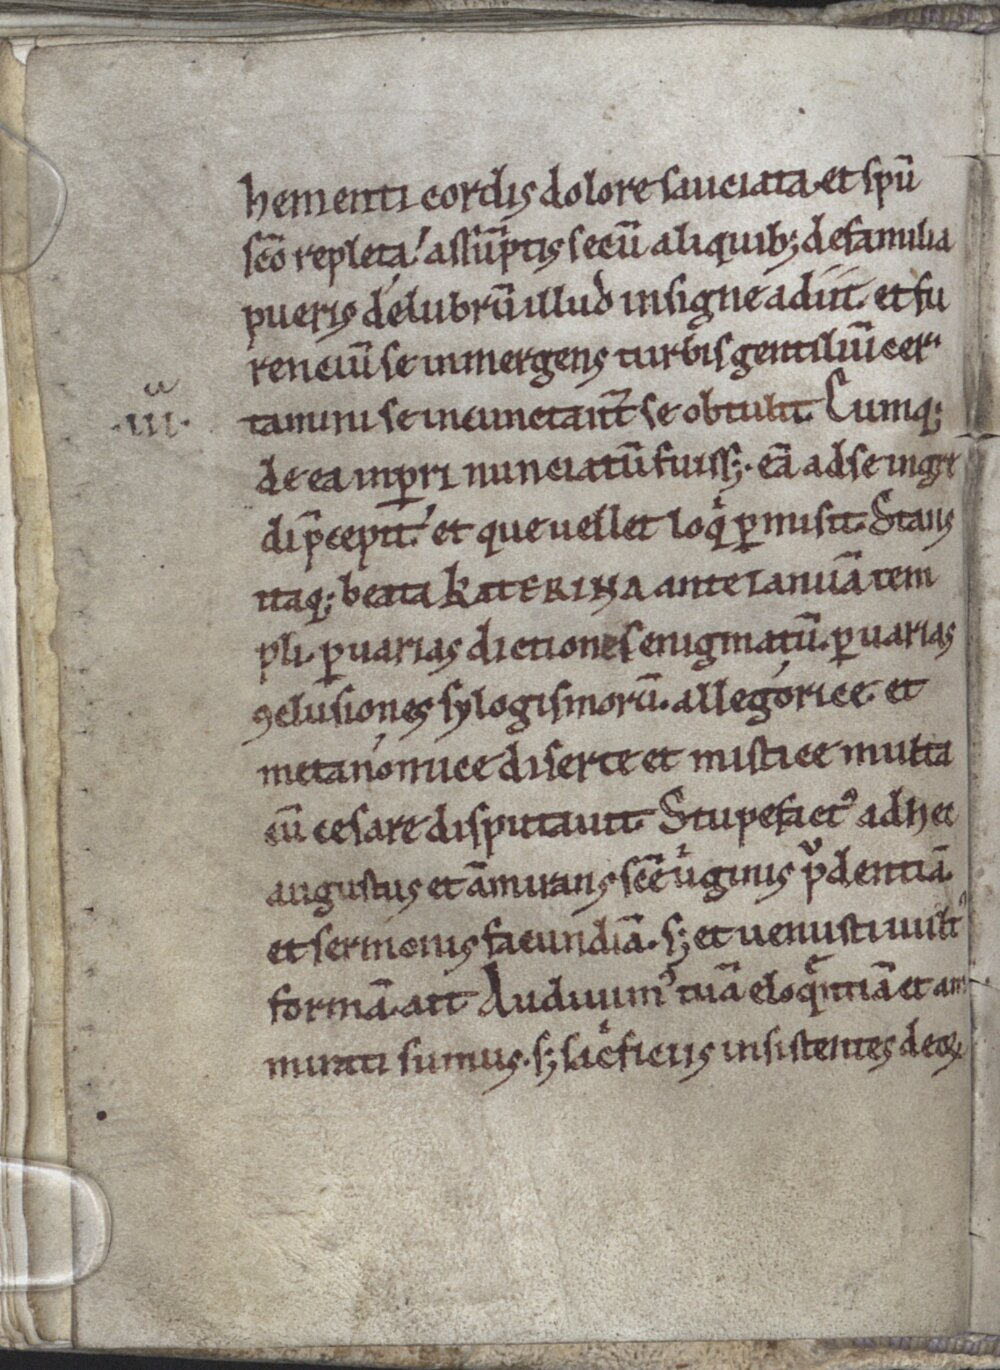 hementi cordis dolore sauciata. et spū
sc̄o repleta! assūptis secū aliquib; de familia
pueris delubrū illud insigne adiit. et fu
renciū se inmergens turbis gentiliū cer
.iii. tamini se incunctant̄ se obtulit. Cumq;
de ea inꝑri nunciatū fuiss;. eā ad se ingre
di p̄cepit! et que uellet loqͥ ꝑmisit. Stans
itaq; beata KATERINA ante ianuā tem
pli. ꝑ uarias dictiones enigmatū. ꝑ uarias
ꝯclusiones sylogismorū. allegorice. et
metanomice diserte et mistice multa
cū cesare disputauit. Stupefactꝰ ad hec
augustus et āmirans sc̄e uͥginis pͮdentiā.
et sermonis facundiā. s; et uenusti uultꝰ
formā. ait Audiuimꝰ tuā eloqᷓntiā et am
mirati sumus. s; sacͥficiis insistentes deoꝝ